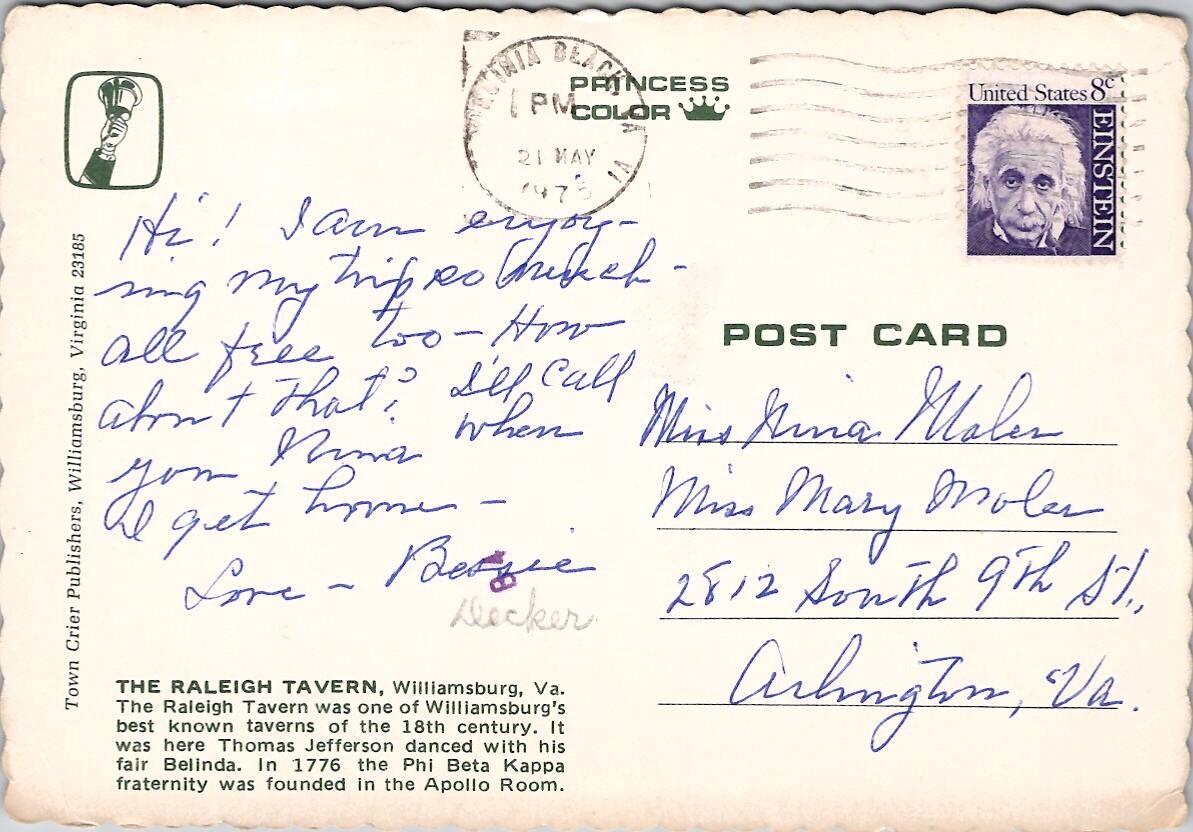 VIRGINIA BEACH, VA
PM
21 MAY
PRINCESS
COLOR
United States 8c
EINSTEIN
Hi! I am enjoy-
ing my trip so much -
all free too - How
about that? I'll call
you Nina when
I get home -
Love - Bessie
Decker
POST CARD
Miss Nina Moler
Miss Mary Moler
2812 South 9th St.,
Arlington, Va.
Town Crier Publishers, Williamsburg, Virginia 23185
THE RALEIGH TAVERN, Williamsburg, Va.
The Raleigh Tavern was one of Williamsburg's
best known taverns of the 18th century. It
was here Thomas Jefferson danced with his
fair Belinda. In 1776 the Phi Beta Kappa
fraternity was founded in the Apollo Room.